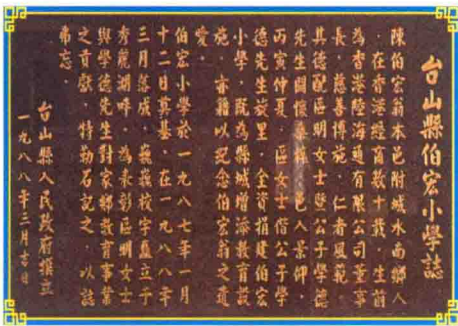 台山縣伯宏小學誌
陳伯宏翁本邑附城水南鄉人
，在香港經商數十載，生前
為香港陸海通有限公司董事
長，慈善博施，仁者風範，
其德配區明女士暨公子學德
先生關懷桑梓，邑人景仰，
丙寅仲夏，區女士偕公子學
德先生旋里，全資捐建伯宏
小學，既為縣城增添教育設
施，亦藉以紀念伯宏翁之遺
愛。
伯宏小學於一九八七年一月
十二日奠基，在一九八八年
三月落成，巍巍校宇矗立于
秀麗湖畔，為表彰區明女士
與學德先生對家鄉教育事業
之貢獻，特勒石記之，以誌
弗忘。
台山縣人民政府撰立
一九八八年三月吉日